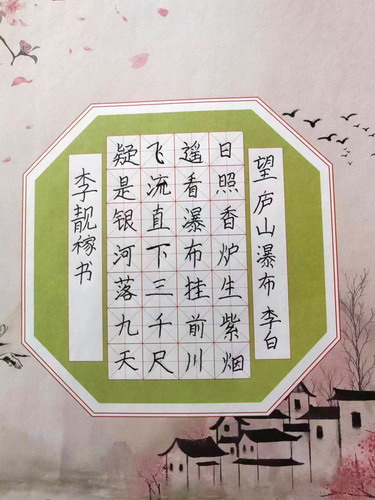 望庐山瀑布 李白
日照香炉生紫烟
遥看瀑布挂前川
飞流直下三千尺
疑是银河落九天
李靓稼书